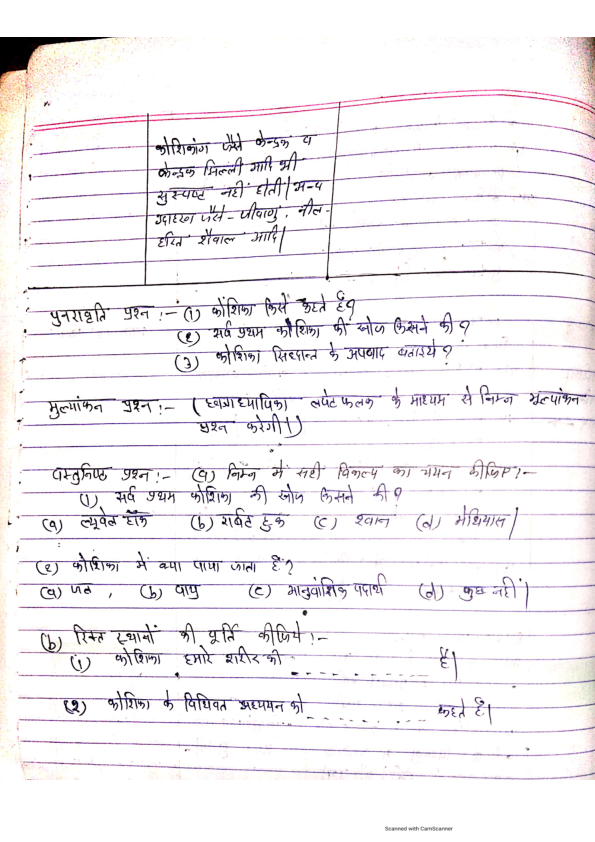 कोशिकांग जैसे केन्द्रक व
केन्द्रक झिल्ली आदि भी
सुस्पष्ट नहीं होती | अन्य
उदाहरण जैसे - जीवाणु, नील-
हरित शैवाल आदि |
पुनरावृति प्रश्न :- (1) कोशिका किसे कहते हैं?
(2) सर्व प्रथम कोशिका की खोज किसने की ?
(3) कोशिका सिध्दान्त के अपवाद बताइये ?
मुल्यांकन प्रश्न :- ( छात्राध्यापिका लपेट फलक के माध्यम से निम्न मूल्यांकन
प्रश्न करेगी | )
वस्तुनिष्ठ प्रश्न :- (a) निम्न में सही विकल्प का चयन कीजिए ?-
(1) सर्व प्रथम कोशिका की खोज किसने की ?
(a) ल्यूवेन हॉक (b) राबर्ट हुक (c) श्वान (d) मेथियास |
(2) कोशिका में क्या पाया जाता है ?
(a) जल , (b) वायु (c) आनुवांशिक पदार्थ (d) कुछ नहीं |
(b) रिक्त स्थानों की पूर्ति कीजिये :-
(1) कोशिका हमारे शरीर की - - - - - - - - - है |
(2) कोशिका के विधिवत अध्ययन को - - - - - - - - कहते हैं |
Scanned with CamScanner